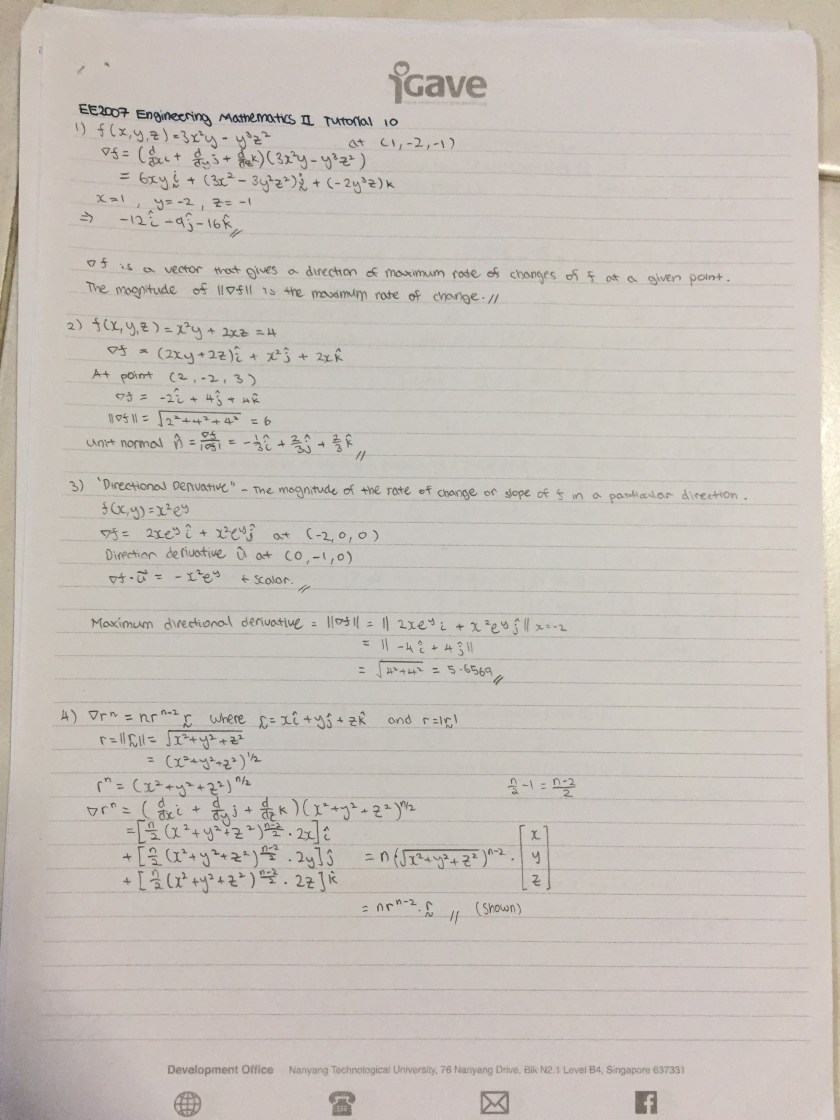 iGave
EE2007 Engineering Mathematics II Tutorial 10
1) f(x,y,z) = 3x²y - y³z² at (1,-2,-1)
∇f = (d/dx i + d/dy j + d/dz k)(3x²y - y³z²)
= 6xy i + (3x² - 3y²z²) j + (-2y³z) k
x=1, y=-2, z=-1
⇒ -12î - 9ĵ - 16k̂ //
∇f is a vector that gives a direction of maximum rate of changes of f at a given point.
The magnitude of ||∇f|| is the maximum rate of change. //
2) f(x,y,z) = x²y + 2xz = 4
∇f = (2xy+2z)î + x²ĵ + 2xk̂
At point (2,-2,3)
∇f = -2î + 4ĵ + 4k̂
||∇f|| = √(2²+4²+4²) = 6
unit normal n̂ = ∇f/|∇f| = -1/3 î + 2/3 ĵ + 2/3 k̂ //
3) "Directional Derivative" - The magnitude of the rate of change or slope of f in a particular direction.
f(x,y) = x²eʸ
∇f = 2xeʸ î + x²eʸ ĵ at (-2,0,0)
Direction derivative û at (0,-1,0)
∇f·u⃗ = -x²eʸ + scalar. //
Maximum directional derivative = ||∇f|| = || 2xeʸ i + x²eʸ ĵ || x=-2
= || -4î + 4ĵ ||
= √(4²+4²) = 5.6569 //
4) ∇rⁿ = nrⁿ⁻² r where r = xî + yĵ + zk̂ and r = |r|
r = ||r|| = √(x²+y²+z²)
= (x²+y²+z²)^1/2
rⁿ = (x²+y²+z²)^n/2 n/2 - 1 = n-2/2
∇rⁿ = (d/dx i + d/dy j + d/dz k)(x²+y²+z²)^n/2
= [n/2 (x²+y²+z²)^n-2/2 · 2x] î
+ [n/2 (x²+y²+z²)^n-2/2 · 2y] ĵ = n(√(x²+y²+z²))ⁿ⁻² · [x y z]
+ [n/2 (x²+y²+z²)^n-2/2 · 2z] k̂
= nrⁿ⁻² · r // (Shown)
Development Office Nanyang Technological University, 76 Nanyang Drive, Blk N2.1 Level B4, Singapore 637331